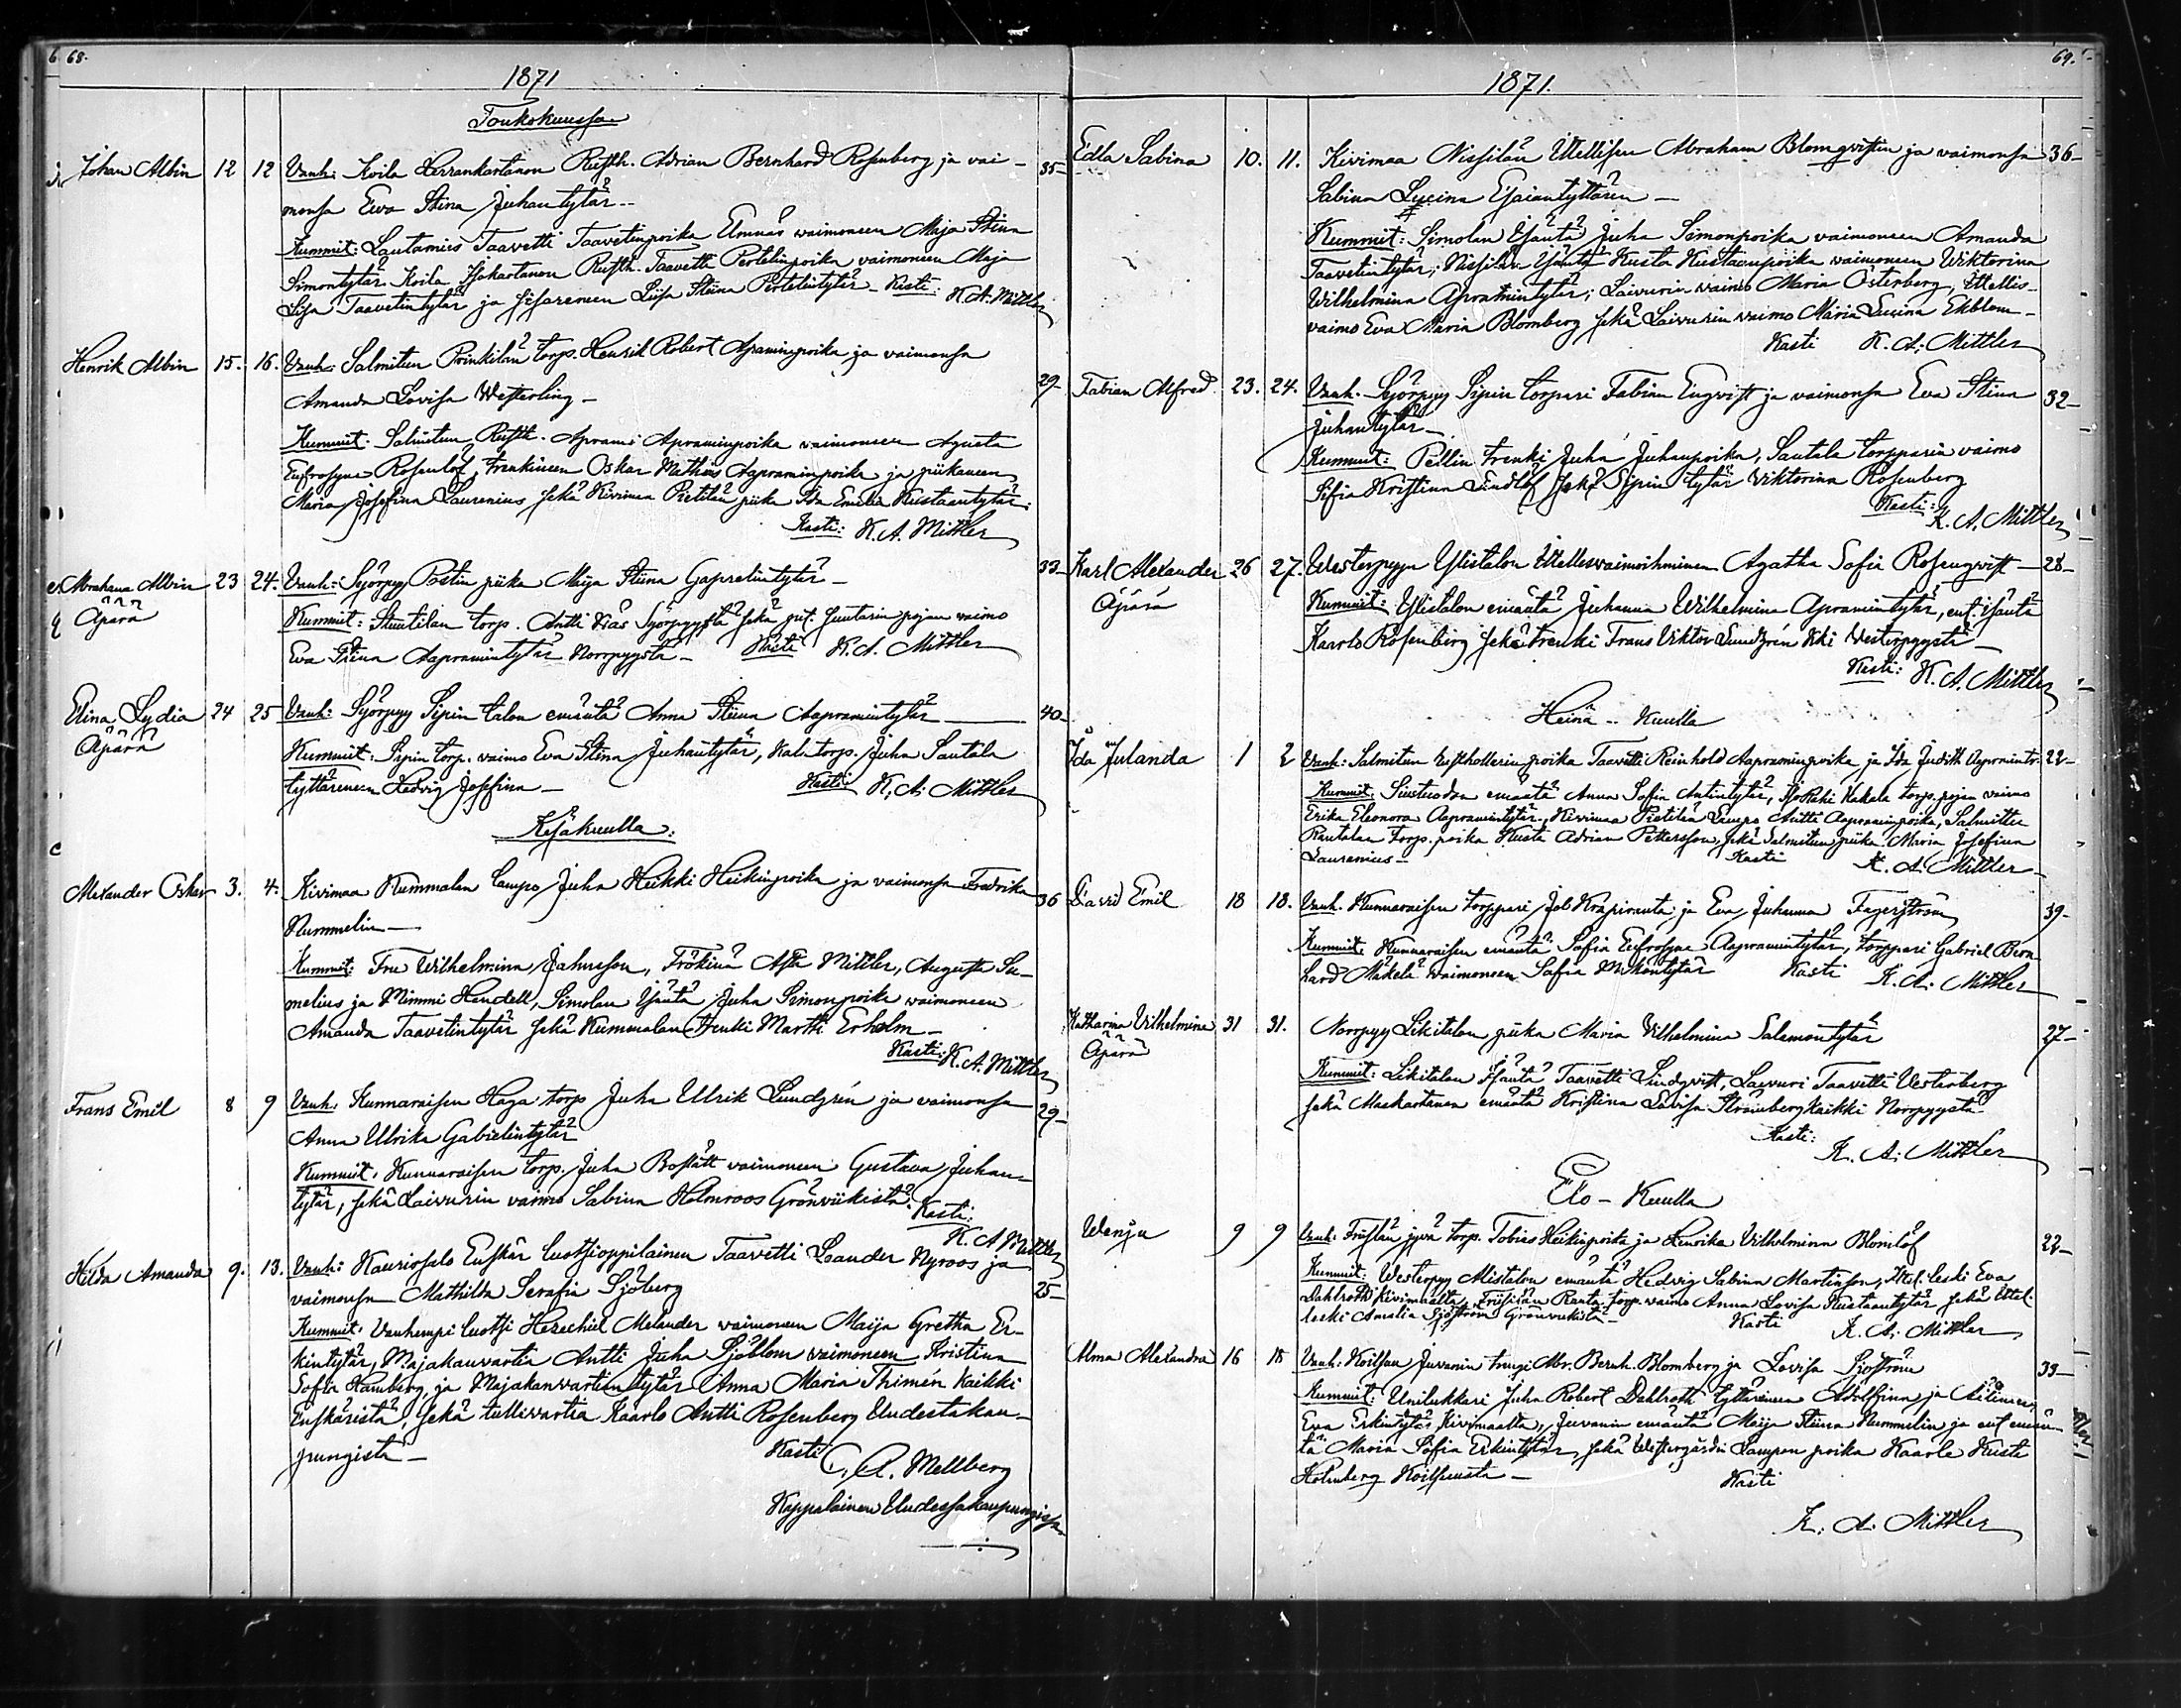 68.
1871
Toukokuussa
Johan Albin 12 12 Vanh: Koila Herrankartanon Rusth. Adrian Bernhard Rosenberg ja vai- 35-
monsa Ewa Stina Juhantytär -
Kummit: Lautamies Taavetti Taavetinpoika waimoneen Maja Stina
Simontytär Koila Isokartanon Rusth. Taavetti Pertelinpoika vaimoneen Maja
Lisa Taavetintytär ja sisareneen Liisa Stiina Pertelintytär - Kasti: K.A. Mittler
Henrik Albin 15. 16. Vanh: Salmitun Prinkilän torp. Henrik Robert Apraminpoika ja vaimonsa 29-
Amanda Lovisa Westerling -
Kummit: Salmitun Rusth. Aprami Apraminpoika vaimoneen Agneta
Eufrosyne Rosenlöf, trenkineen Oskar Mathias Aapraminpoika ja piikaneen
Maria Josefina Laurenius sekä Kivimaa Pietilän piika Ida Emilia Kustaantytär.
Kasti: K.A. Mittler
Abrahan Albin 23 24. Vanh: Syörpyy Postin piika Maija Stiina Gaprelintytär - 33-
Äpärä
Kummit: torp. Antti Syörpyystä sekä Juutarin pojan waimo
Eva Stiina Aapramintytär Norrpyystä - Kasti K.A. Mittler
Elina Lydia 24 25 Vanh: Syörpyy Sipin talon emäntä Anna Stiina Aapramintytär - 40-
Äpärä
Kummit: Sipin torp. vaimo Eva Stina Juhantytär, torp. Juha Santala
tyttäreneen Hedvig Josefina - Kasti K.A. Mittler
Kesäkuulla:
Alexander Oskar 3. 4. Kivimaa Kummalan Lampo Juha Heikki Heikinpoika ja vaimonsa Fredrika 36
Nummelin -
Kummit: Fru Wilhelmina Jahnsson, Frökinä Asta Mittler, Augusta Su-
melius ja Mimmi Handell, Simolan Isäntä Juha Simonpoika waimoneen
Amanda Taavetintytär sekä Kummalan trenki Martti Erholm -
Kasti: K.A. Mittler
Frans Emil 8 9 Vanh: Kunnaraisen Haga torp Juha Ulrik Lundgrén ja vaimonsa 29-
Anna Ulrika Gabrielintytär
Kummit: Kunnaraisen torp. Juha Boställ vaimoneen Gustava Juhan-
tytär, sekä Laivurin vaimo Sabina Holmroos Grönvikistä. Kasti:
K.A. Mittler
Hilda Amanda 9. 13. Vanh: Kauriosalo Enskär luotsioppilainen Taavetti Leander Nyroos ja 25-
vaimonsa Mathilda Serafia Sjöberg
Kummit: Vanhempi luotsi Hezechiel Melander waimoneen Maija Gretha Er-
kintytär, Majakanvartia Antti Juha Sjöblom vaimoneen Kristina
Sofia Hamberg, ja Majakanvartian tytär Anna Maria Thimén kaikki
Enskäristä, sekä tullivartia Kaarlo Antti Rosenberg Uudestakau-
pungista -
Kasti C. A. Mellberg
Kappalainen Uudessakaupungissa
69.
1871.
Edla Sabina 10. 11. Kivimaa Nissilän Ittellisen Abraham Blomqvistin ja vaimonsa 36-
Sabina Lucina Esaiantyttären -
Kummit: Simolan Isäntä Juha Simonpoika vaimoneen Amanda
Taavetintytär; Nissilän Isäntä Kusta Kustaanpoika vaimoneen Wiktorina
Wilhelmina Apramintytär; Laivurin waimo Maria Österberg, Ittellis-
vaimo Eva Maria Blomberg sekä Laivurin vaimo Maria Lucina Ekblom -
Kasti K.A. Mittler
Fabian Alfred 23. 24. Vanh. Syörpyy Sipin torpari Fabian Engvist ja vaimonsa Eva Stina 32-
Juhantytär -
Kummit: Pellin trenki Juha Juhanpoika, Santala torpparin vaimo
Sofia Kristiina Lindlöf sekä Sipin tytär Viktorina Rosenberg
Kasti: K.A. Mittler
Karl Alexander 26 27. Westerpyyn Ylistalon Ittellesvaimoihminen Agatha Sofia Rosengvist - 28-
Äpärä
Kummit: Ylistalon emäntä Juhanna Wilhelmina Apramintytär, ent. isäntä
Kaarlo Rosenberg sekä trenki Frans Viktor Lundgrén Kki Westerpyystä -
Kasti: K.A. Mittler
Heinä - Kuulla
Ida Julanda 1 2 Vanh: Salmitun rusthollerin poika Taavetti Reinhold Aapraminpoika ja Ida Judith Aapramintr. 22-
Kummit: emäntä Anna Sofia Antintytär, torp. pojan vaimo
Erika Eleonora Aapramintytär, Kivimaa Pietilän Lampo Antti Aapraminpoika, Salmittu
Rantalan torp. poika Kusta Adrian Pettersson, sekä Salmitun piika Maria Josefina
Laurenius - Kasti K.A. Mittler -
David Emil 18 18. Vanh. Kunnaraisen torppari Job Krapiranta ja Eva Juhanna Fagerström 39-
Kummit: Kunnaraisen emäntä Sofia Eufrosyne Aapramintytär, torppari Gabriel Bern-
hard Mäkelä waimoneen Sofia Mikontytär Kasti K.A. Mittler
Katharina Vilhelmina 31 31. Norrpyy Sikitalon piika Maria Vilhelmina Salamontytär 27-
Äpärä
Kummit: Sikitalon isäntä Taavetti Lindqvist, Laivuri Taavetti Vesterberg
sekä Maakartanon emäntä Kristina Lovisa Strömberg kaikki Norrpyystä
Kasti: K.A. Mittler
Elo - Kuulla
Wenju 9 9 Vanh: torp. Tobias Heikinpoika ja Henrika Vilhelmina Blomlöf 22-
Kummit: Westerpyy Alistalon emäntä Hedvig Sabina Martinson, Ittel. leski Eva
Dahlroth Kivimaalta, Ranta torp. vaimo Anna Lovisa Kustaantytär sekä Ittel.
leski Amalia Sjöström Grönvikistä - Kasti K.A. Mittler
Alma Alexandra 16 18 Vanh: Koilsan Juvanin trengi Abr. Bernh. Blomberg ja Lovisa Sjöström 33-
Kummit: Unilukkari Juha Robert Dahlroth tyttärineen Adolfina ja
Eva Erkintytär, Kivimaalta, Juvanin emäntä Maija Stiina Nummelin ja ent emän-
tä Maria Sofia Erkintytär, sekä Westergårdin Lampon poika Kaarle Kusta
Holmberg Koilsuusta -
Kasti
K.A. Mittler